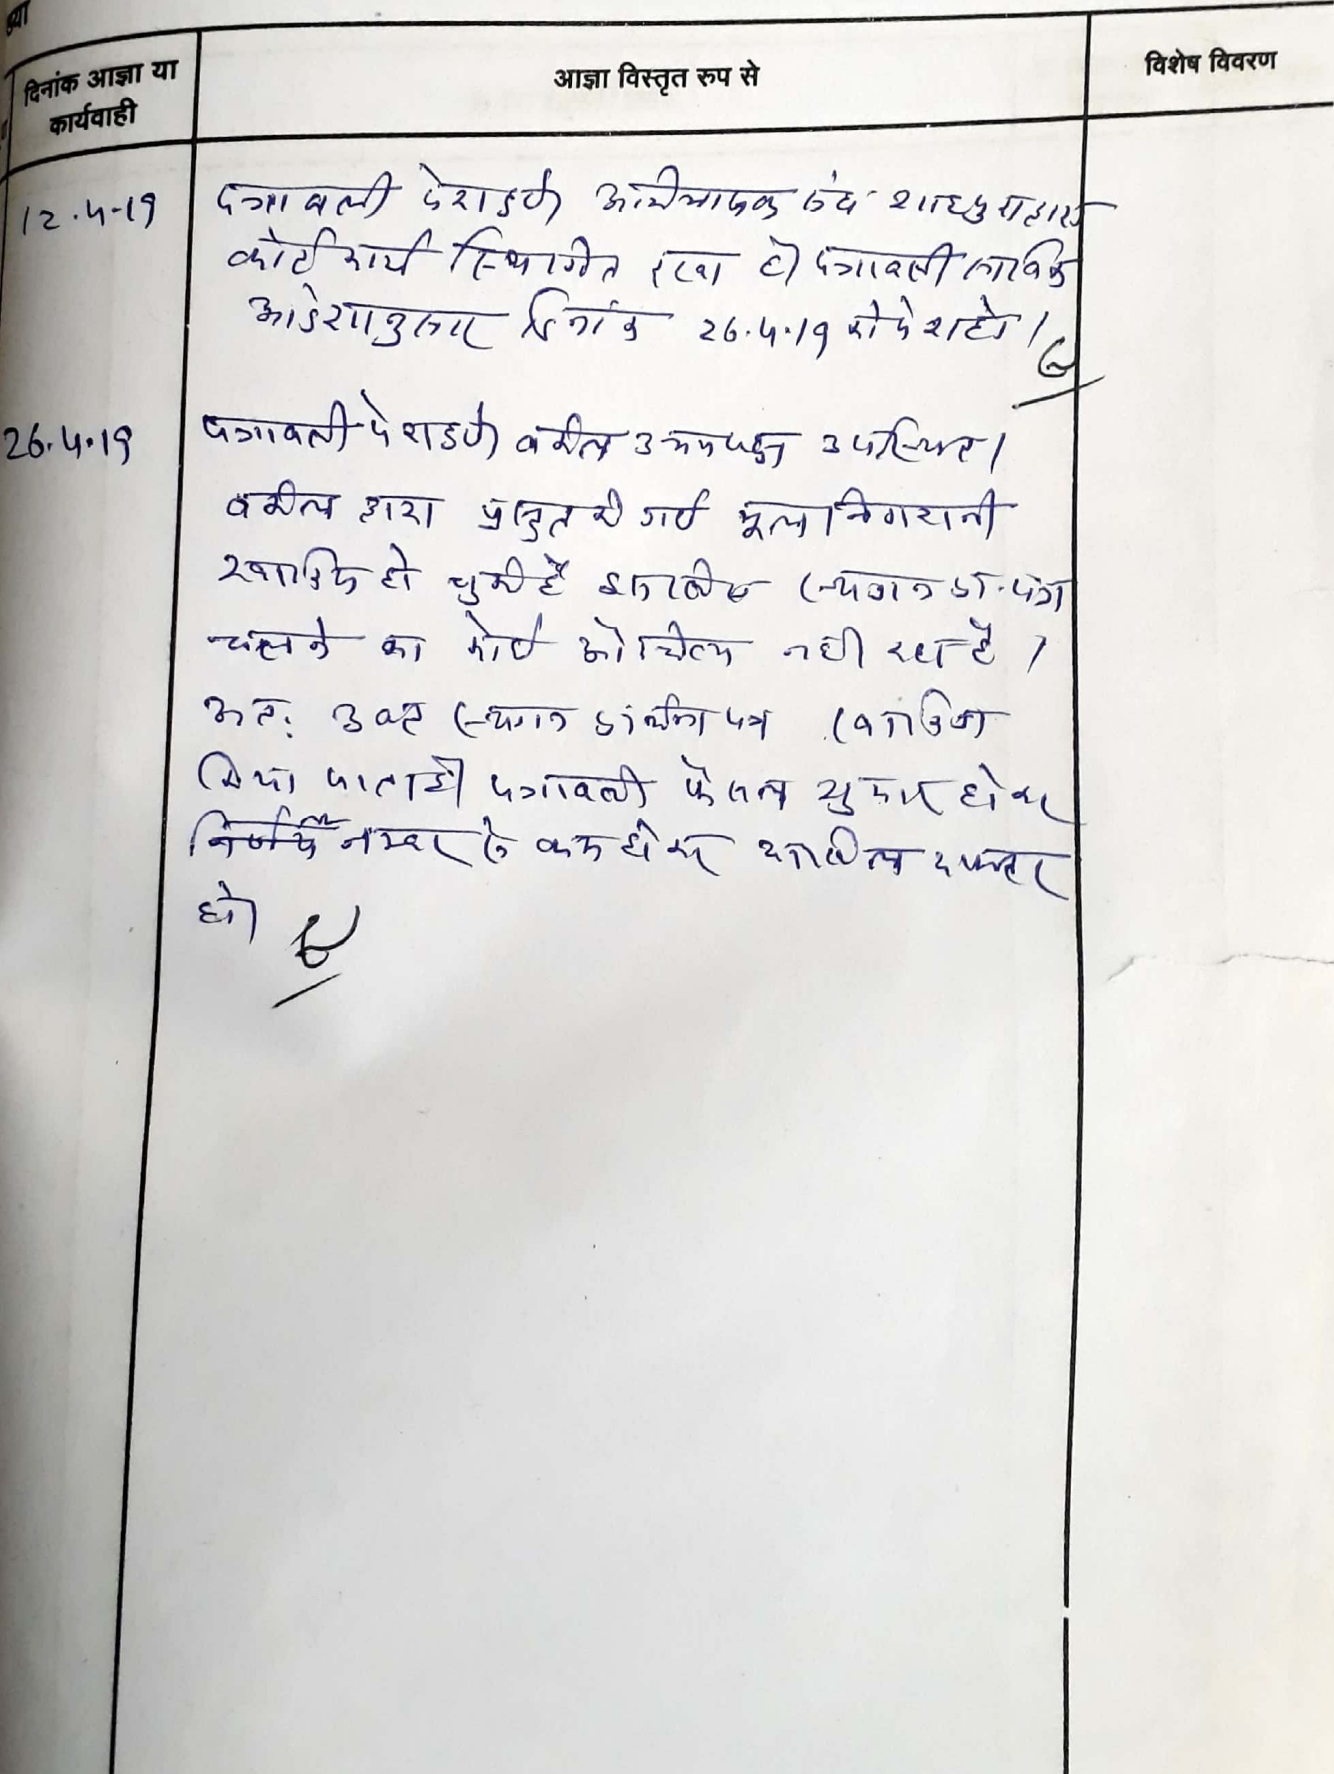 दिनांक आज्ञा या
कार्यवाही
आज्ञा विस्तृत रुप से
विशेष विवरण
12.4.19
पत्रावली पेश हुई। अभिभाषक संघ शाहपुरा द्वारा
कोई कार्य स्थगित रखा है। पत्रावली साबिक
आदेशानुसार दिनांक 26.4.19 को पेश हो।
26.4.19
पत्रावली पेश हुई। वकील उभयपक्ष उपस्थित।
वकील द्वारा प्रस्तुत की गई मूल निगरानी
खारिज हो चुकी है इसलिए स्थगन प्रा. पत्र
चलने का कोई औचित्य नही रहा है।
अतः उक्त स्थगन प्रार्थना पत्र खारिज
किया जाता है। पत्रावली फैसल शुमार होकर
नम्बर से कम होकर दाखिल दफ्तर
हो।